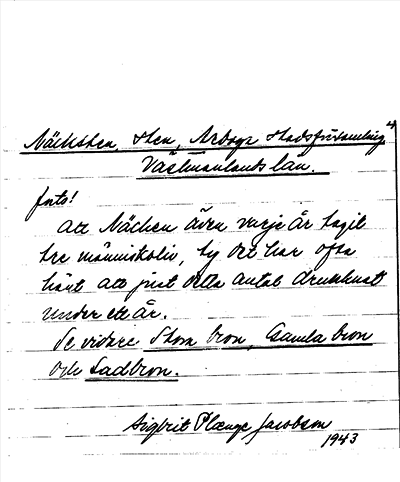 4
Näcksten, sten, Arboga stadsförsamling
Västmanlands län.
forts!
att Näcken även varje år tagit
tre människoliv, ty det har ofta
hänt att just detta antal drunknat
under ett år.
Se vidare Stora bron, Gamla bron
och Ladbron.
Sigbrit Plænge Jacobson
1943